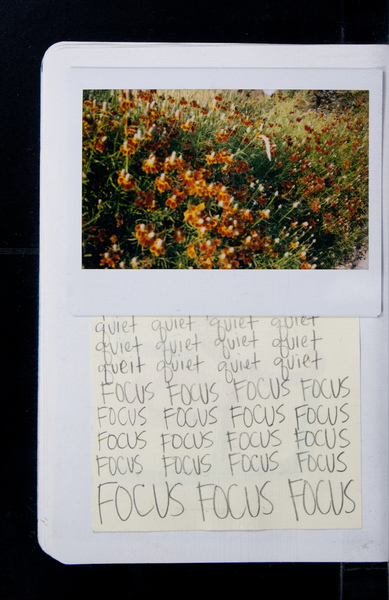 quiet quiet quiet quiet
quiet quiet quiet quiet
queit quiet quiet quiet
FOCUS FOCUS FOCUS FOCUS
FOCUS FOCUS FOCUS FOCUS
FOCUS FOCUS FOCUS FOCUS
FOCUS FOCUS FOCUS FOCUS
FOCUS FOCUS FOCUS